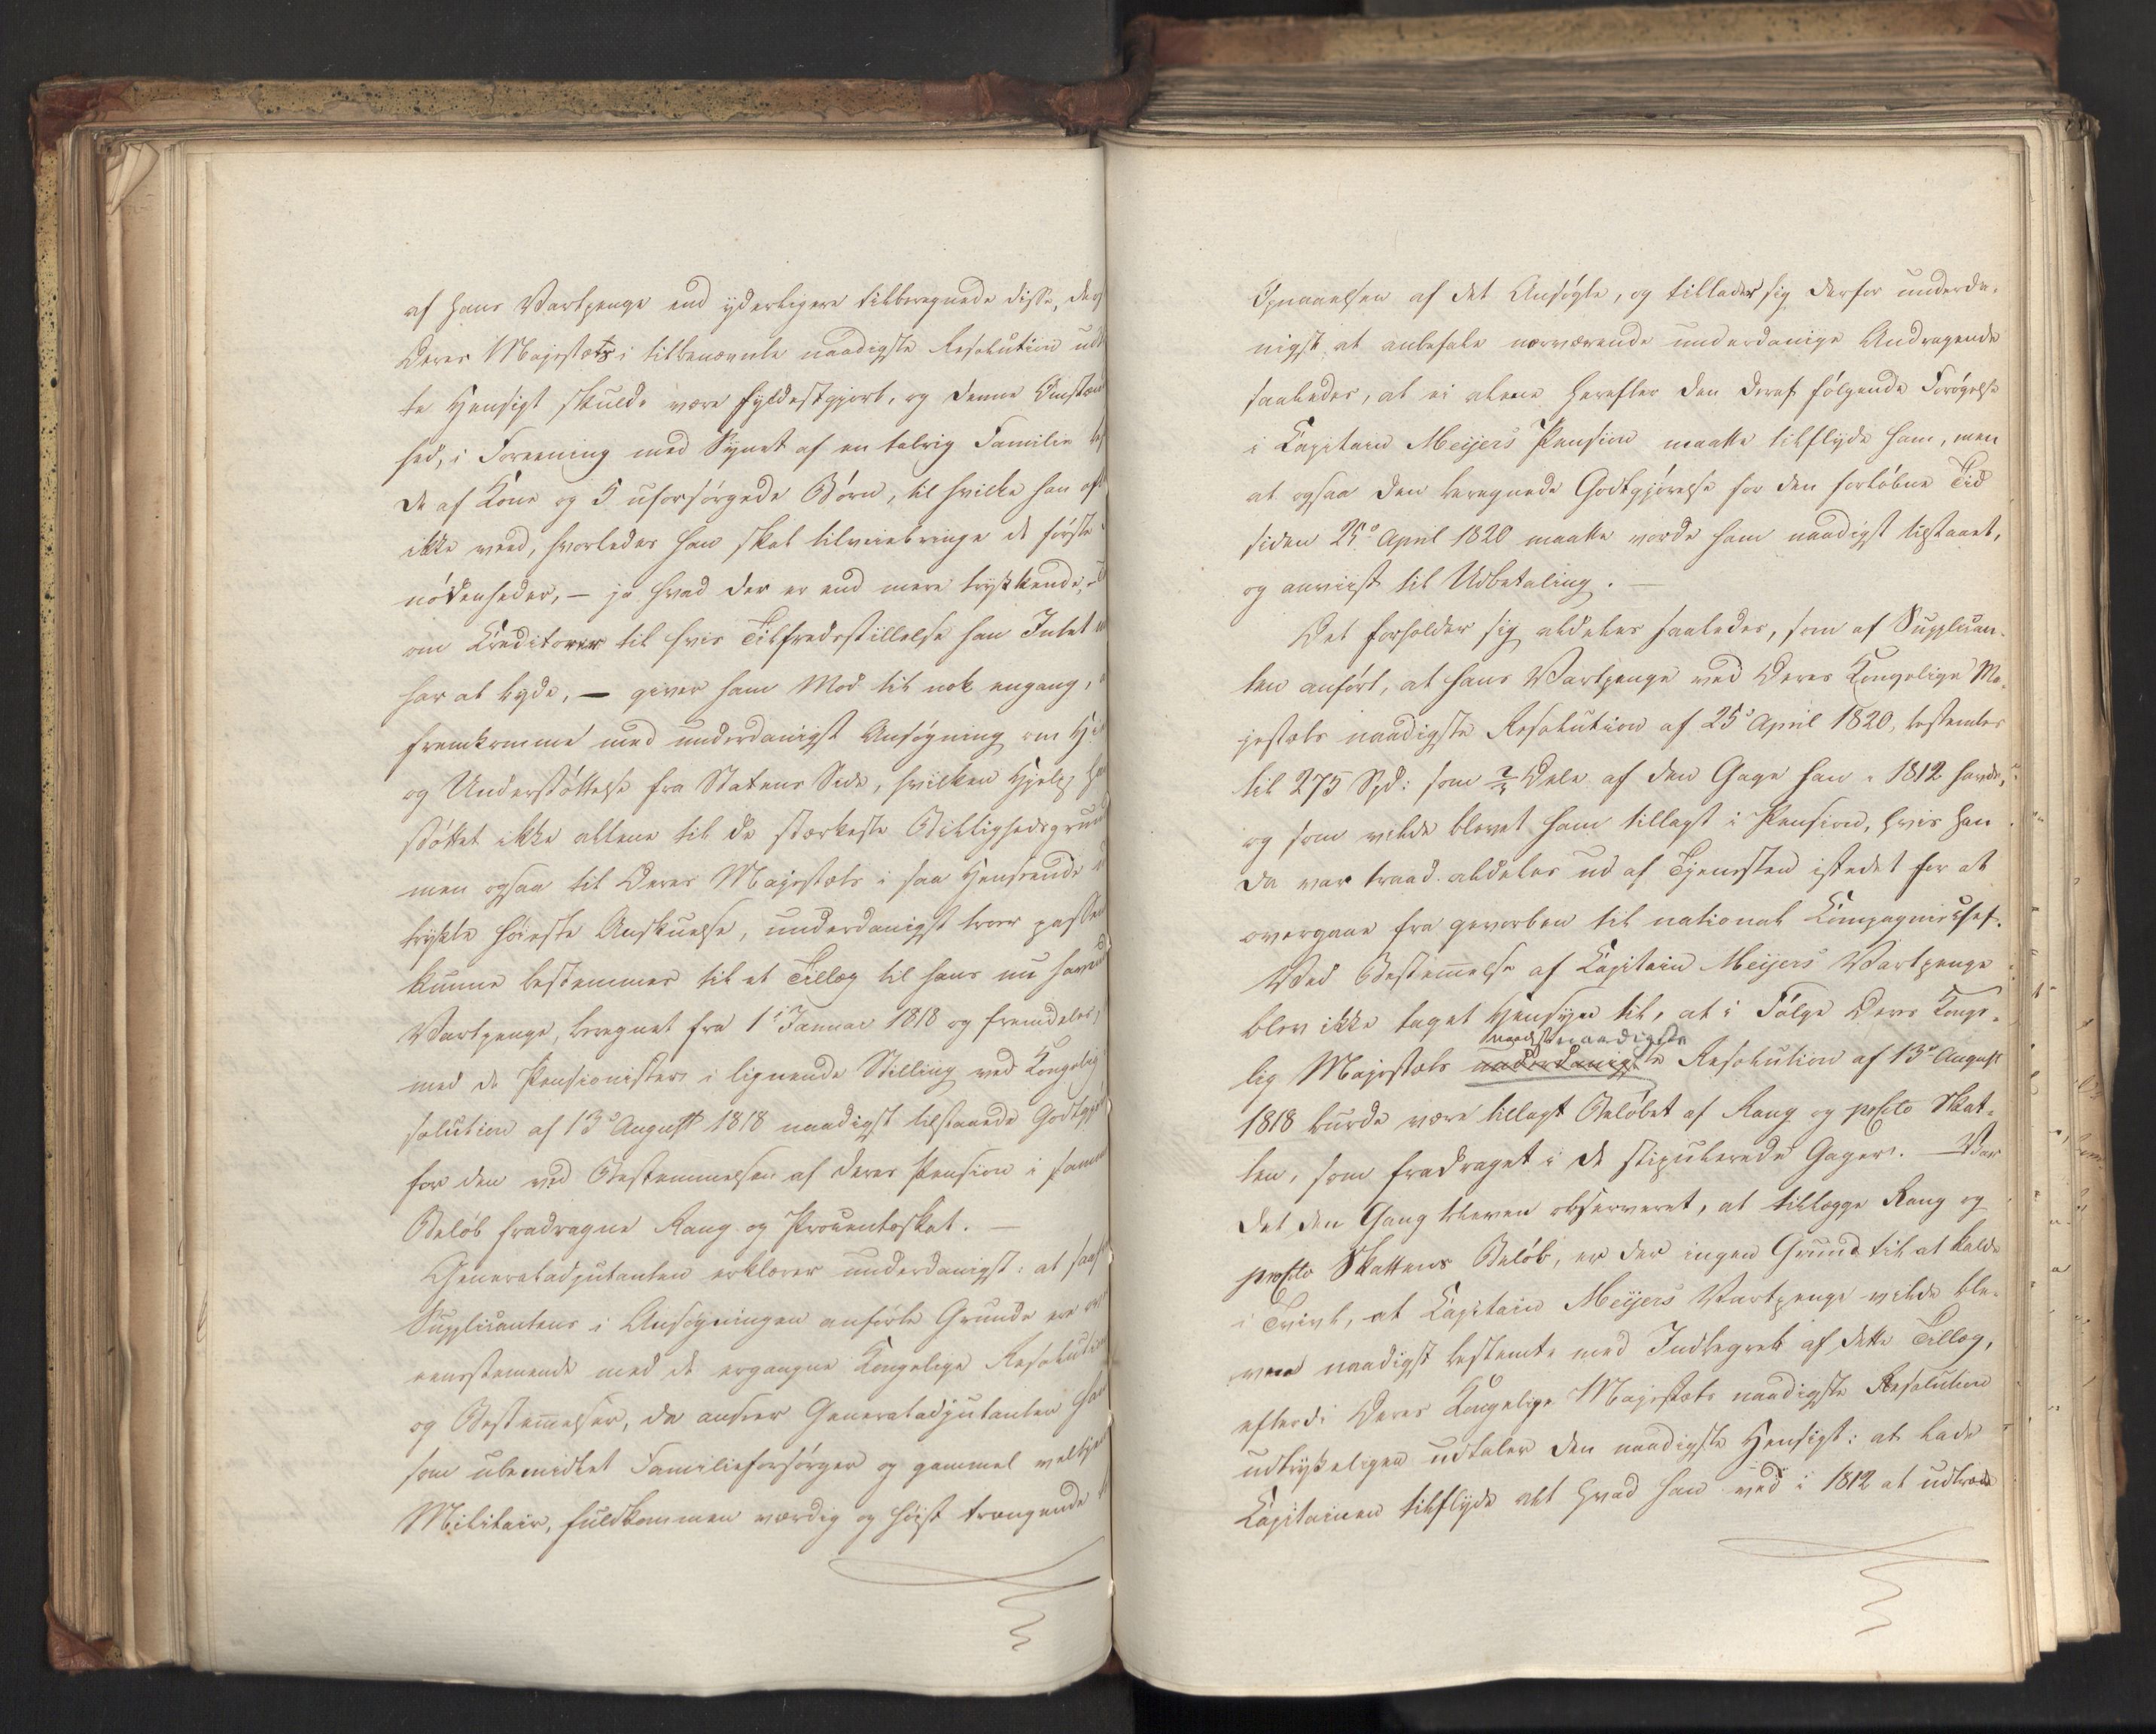 af hans Vartpenge end yderligere tilberegnede disse, der
Deres Majestæts i tilbenævnte naadigste Resolution udt
te Hensigt skulde være fyldestgjort, og denne Omstæn
hed, i Forening med Synet af en talrig Familie
de af Kone og 5 uforsørgede Børn, til hvilke han oft
ikke veed, hvorledes han skal tilveiebringe de første
nødenheder, – ja hvad der er end mere trykkende,
om Creditorer til hvis Tilfredsstillelse han Intet
har at byde, – giver ham Mod til nok engang,
fremkomme med underdanigst Ansøgning om
og Understøttelse fra Statens Side, hvilken Hjelp
støttet ikke allene til de stærkeste Billighedsgrun
men ogsaa til Deres Majestæts i saa Henseende
trykte høieste Anskuelse, underdanigst troer
kunne bestemmes til et Tillæg til hans nu havend
Vartpenge, beregnet fra 1ste Januar 1818 og fremdeles,
med de Pensionister i lignende Stilling ved Kongelig
solution af 13de August 1818 naadigst tilstaaede Godtgjør
for den ved Bestemmelsen af deres Pension i samme
Beløb fradragne Rang og Procentskat. –
Generaladjutanten erklærer underdanigst: at
Supplicantens i Ansøgningen anførte Grunde ere
eensstemende med de ergangne Kongelige Resolution
og Bestemelser, da anseer Generaladjutanten ham
som ubemidlet Familieforsørger og gammel veltjent
Militair, fuldkommen værdig og høist trængende
Opnaaelsen af det Ansøgte, og tillader sig derfor underda-
nigst at anbefale nærværende underdanige Andragende
saaledes, at ei alene herefter den deraf følgende Forøgelse
i Capitain Meijers Pension maatte tilflyde ham, men
at ogsaa den beregnede Godtgjørelse for den forløbne Tid
siden 25de April 1820 maatte vorde ham naadigst tilstaaet,
og anviist til Udbetaling. –
Det forholder sig aldeles saaledes, som af Supplican-
ten anført, at hans Vartpenge ved Deres Kongelige Ma-
jestæts naadigste Resolution af 25de April 1820, bestemtes
til 275 Spd: som Dele af den Gage han i 1812 havde,
og som vilde blevet ham tillagt i Pension, hvis han
da var traad aldeles ud af Tjenesten istedet for at
overgaae fra geworben til national Compagniechef.
Ved Bestemelse af Capitain Meijers Vartpenge
blev ikke taget Hensyn til, at i Følge Deres Konge-
naadigste
lig Majestæts underdanigste Resolution af 13de August
1818 burde være tillagt Beløbet af Rang og proCto Skat-
ten, som fradraget i de stipulerede Gager. – Var
det den Gang bleven observeret, at tillægge Rang og
proCto Skattens Beløb, er der ingen Grund til at kalde
i Tvivl, at Capitain Meijers Vartpenge vilde ble-
vene naadigst bestemte med Indbegreb af dette Tillæg,
efterdi Deres Kongelige Majestæts naadigste Resolution
udtrykeligen udtaler den naadigste Hensigt: at lade
Capitainen tilflyde alt hvad han ved i 1812 at udtræde